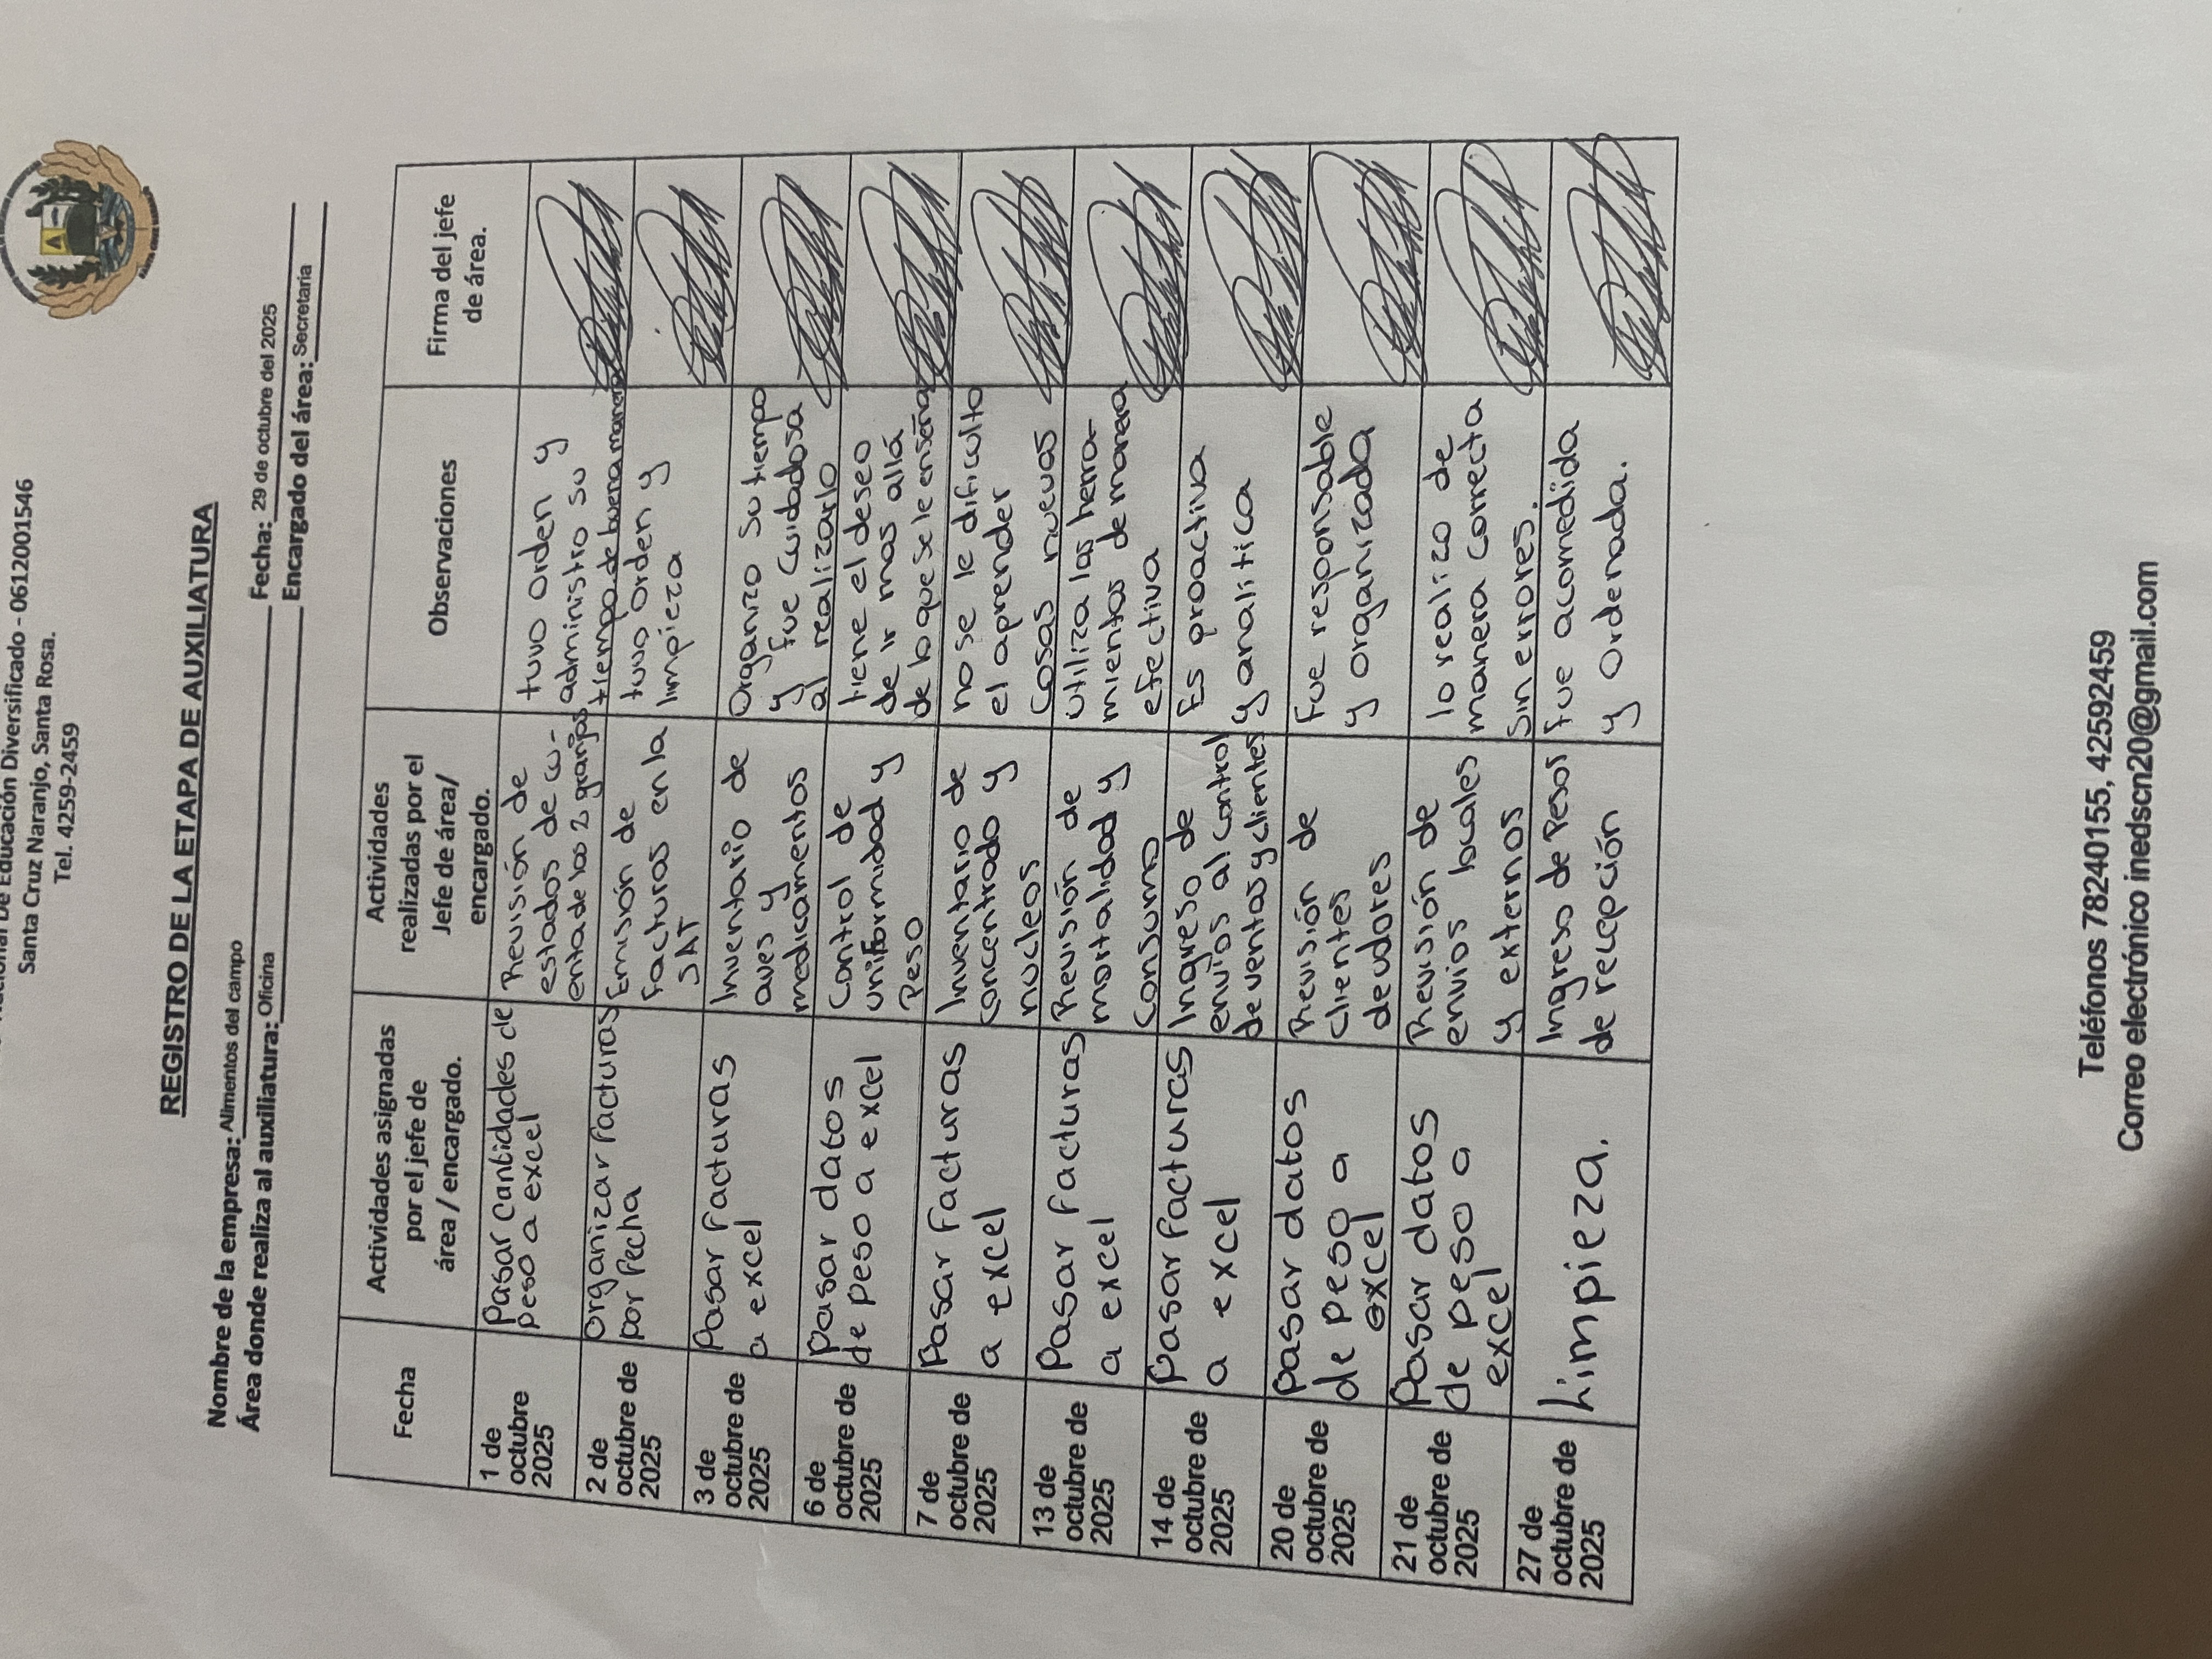 De Educación Diversificado - 0612001546
Santa Cruz Naranjo, Santa Rosa.
Tel. 4259-2459
REGISTRO DE LA ETAPA DE AUXILIATURA
Nombre de la empresa: Alimentos del campo Fecha: 29 de octubre del 2025
Área donde realiza al auxiliatura: Oficina Encargado del área: Secretaria
Fecha
Actividades asignadas
por el jefe de
área / encargado.
Actividades
realizadas por el
Jefe de área/
encargado.
Observaciones
Firma del jefe
de área.
1 de
octubre
2025
Pasar cantidades de
peso a excel
Revisión de
estados de cu-
enta de las 2 granjas
tuvo orden y
administro su
tiempo de buena manera
2 de
octubre de
2025
organizar facturas
por fecha
Emisión de
facturas en la
SAT
tuvo orden y
limpieza
3 de
octubre de
2025
Pasar facturas
a excel
Inventario de
aves y
medicamentos
Organizo su tiempo
y fue cuidadosa
al realizarlo
6 de
octubre de
2025
pasar datos
de peso a excel
Control de
uniformidad y
Peso
tiene el deseo
de ir mas allá
de lo que se le enseña
7 de
octubre de
2025
Pasar facturas
a excel
Inventario de
concentrado y
nucleos
no se le dificulto
el aprender
cosas nuevas
13 de
octubre de
2025
Pasar facturas
a excel
Revisión de
mortalidad y
Consumo
utiliza las herra-
mientas de manera
efectiva
14 de
octubre de
2025
Pasar facturas
a excel
Ingreso de
envios al control
de ventas y clientes
Es proactiva
y analitica
20 de
octubre de
2025
Pasar datos
de peso a
excel
Revisión de
clientes
deudores
Fue responsable
y organizada
21 de
octubre de
2025
Pasar datos
de peso a
excel
Revisión de
envios locales
y externos
lo realizo de
manera correcta
sin errores.
27 de
octubre de
2025
Limpieza.
Ingreso de Pesos
de recepción
fue acomedida
y ordenada.
Teléfonos 78240155, 42592459
Correo electrónico inedscn20@gmail.com